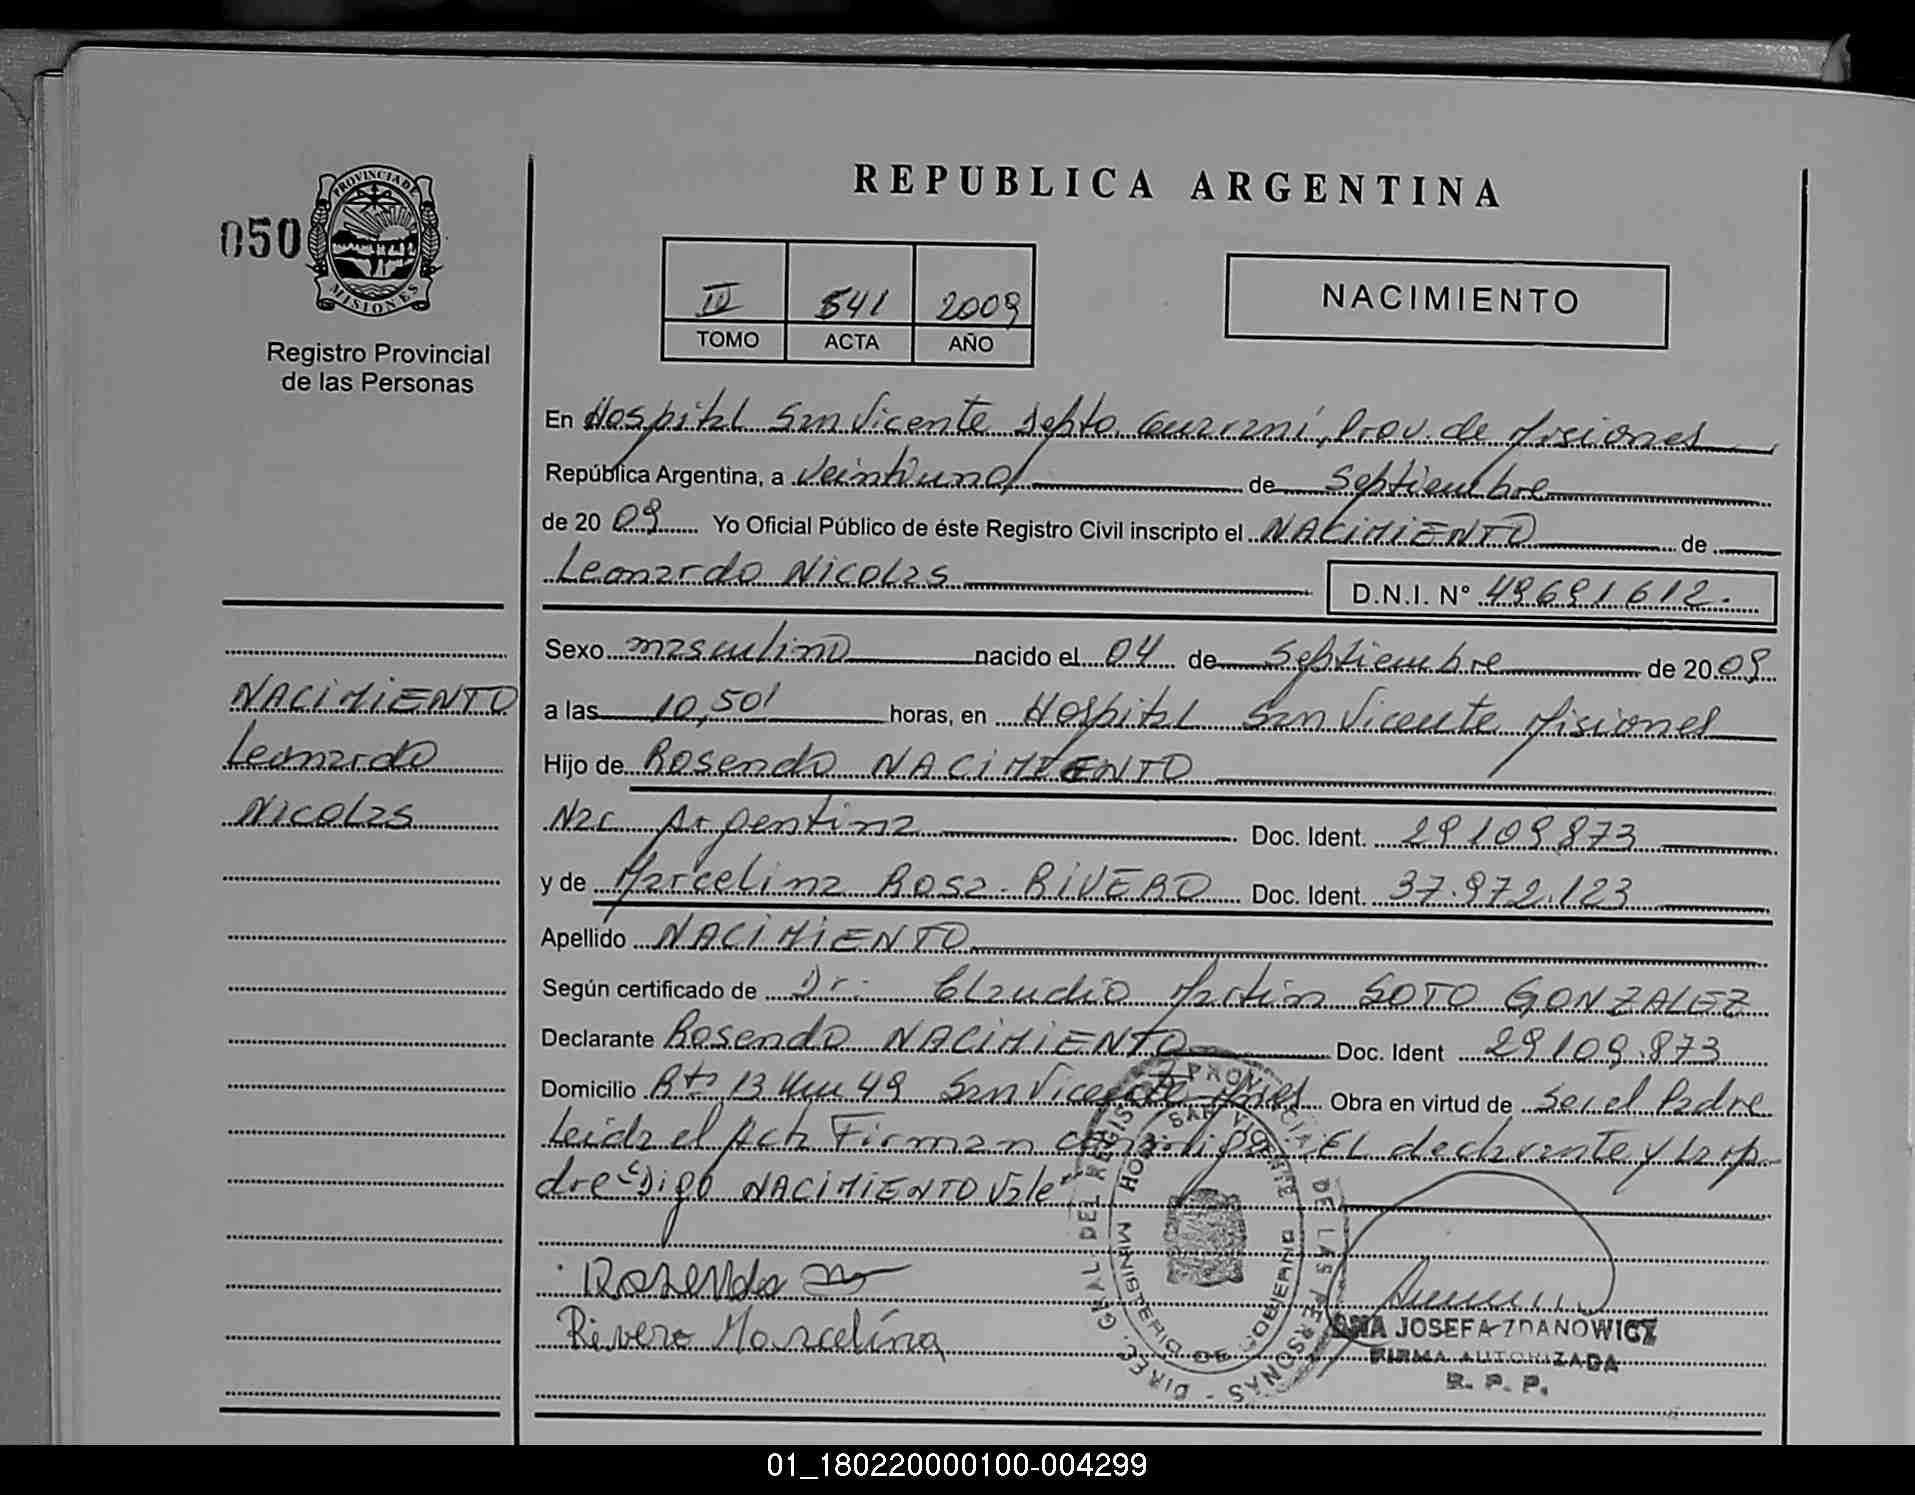 REPUBLICA ARGENTINA
PROVINCIA DE
MISIONES
050
Registro Provincial
de las Personas
III 541 2009
TOMO ACTA AÑO
NACIMIENTO
En Hospital San Vicente Depto. Guarani, Prov. de Misiones
República Argentina, a Veintiuno de Septiembre
de 20 09 Yo Oficial Público de éste Registro Civil inscripto el NACIMIENTO de
Leonardo Nicolas D.N.I. N° 49691612.
Sexo masculino nacido el 04 de Septiembre de 20 09
NACIMIENTO
Leonardo
Nicolas
a las 10,50' horas, en Hospital San Vicente Misiones
Hijo de Rosendo NACIMIENTO
Nac Argentina Doc. Ident. 29109873
y de Marcelina Rosa RIVERO Doc. Ident. 37.972.123
Apellido NACIMIENTO
Según certificado de Dr. Claudio Martin SOTO GONZALEZ
Declarante Rosendo NACIMIENTO Doc. Ident 29109.873
Domicilio Rta 13 Km 49 San Vicente Mnes Obra en virtud de Ser el Padre
Leida el Acta Firman conmigo EL declarante y la ma-
dre "Digo NACIMIENTO Vale"
Rosendo
Rivero Marcelina
DIREC. GRAL. DEL REGISTRO PROVINCIAL DE LAS PERSONAS
HOSP. SAN VICENTE
MINISTERIO DE GOBIERNO
ANA JOSEFA ZDANOWICZ
FIRMA AUTORIZADA
R. P. P.
01_180220000100-004299